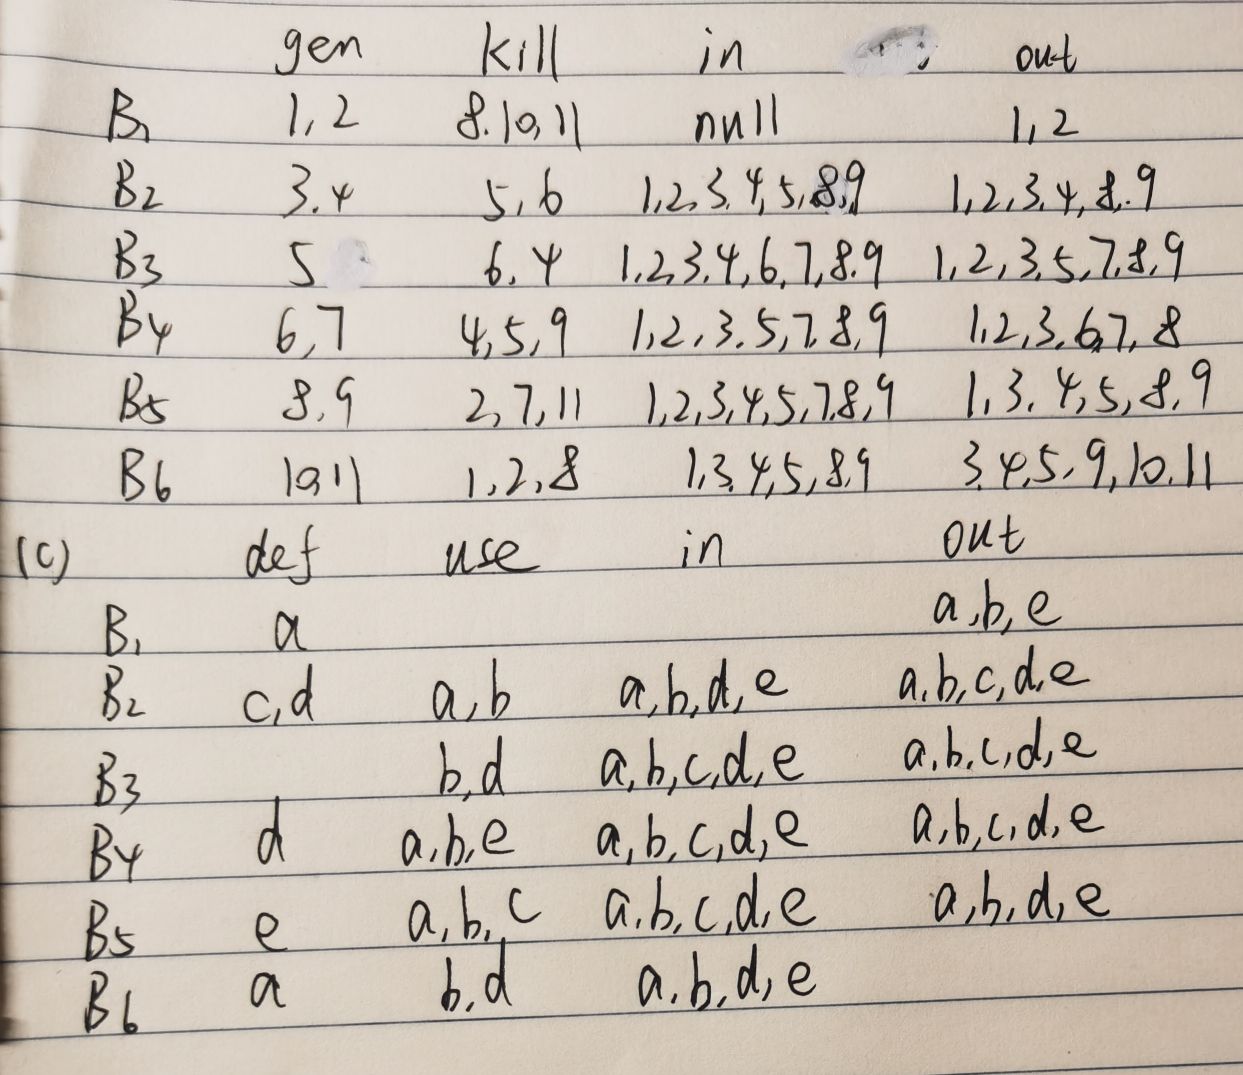 gen kill in out
B1 1,2 8.10,11 null 1,2
B2 3.4 5,6 1,2,3.4,5,8,9 1,2,3,4,8,.9
B3 5 6.4 1,2,3.4,6,7,8.9 1,2,3,5,7,8,9
B4 6,7 4,5,9 1,2,3.5,7,8,9 1,2,3,6,7,8
B5 8,9 2,7,11 1,2,3,4,5,7,8,9 1,3.4,5,8,9
B6 10,11 1,2,8 1,3.4,5,8,9 3.4,5.9,10.11
(c) def use in out
B1 a a,b,e
B2 c,d a,b a,b,d,e a,b,c,d,e
B3 b,d a,b,c,d,e a,b,c,d,e
B4 d a,b,e a,b,c,d,e a,b,c,d,e
B5 e a,b,c a,b,c,d,e a,b,d,e
B6 a b,d a,b,d,e